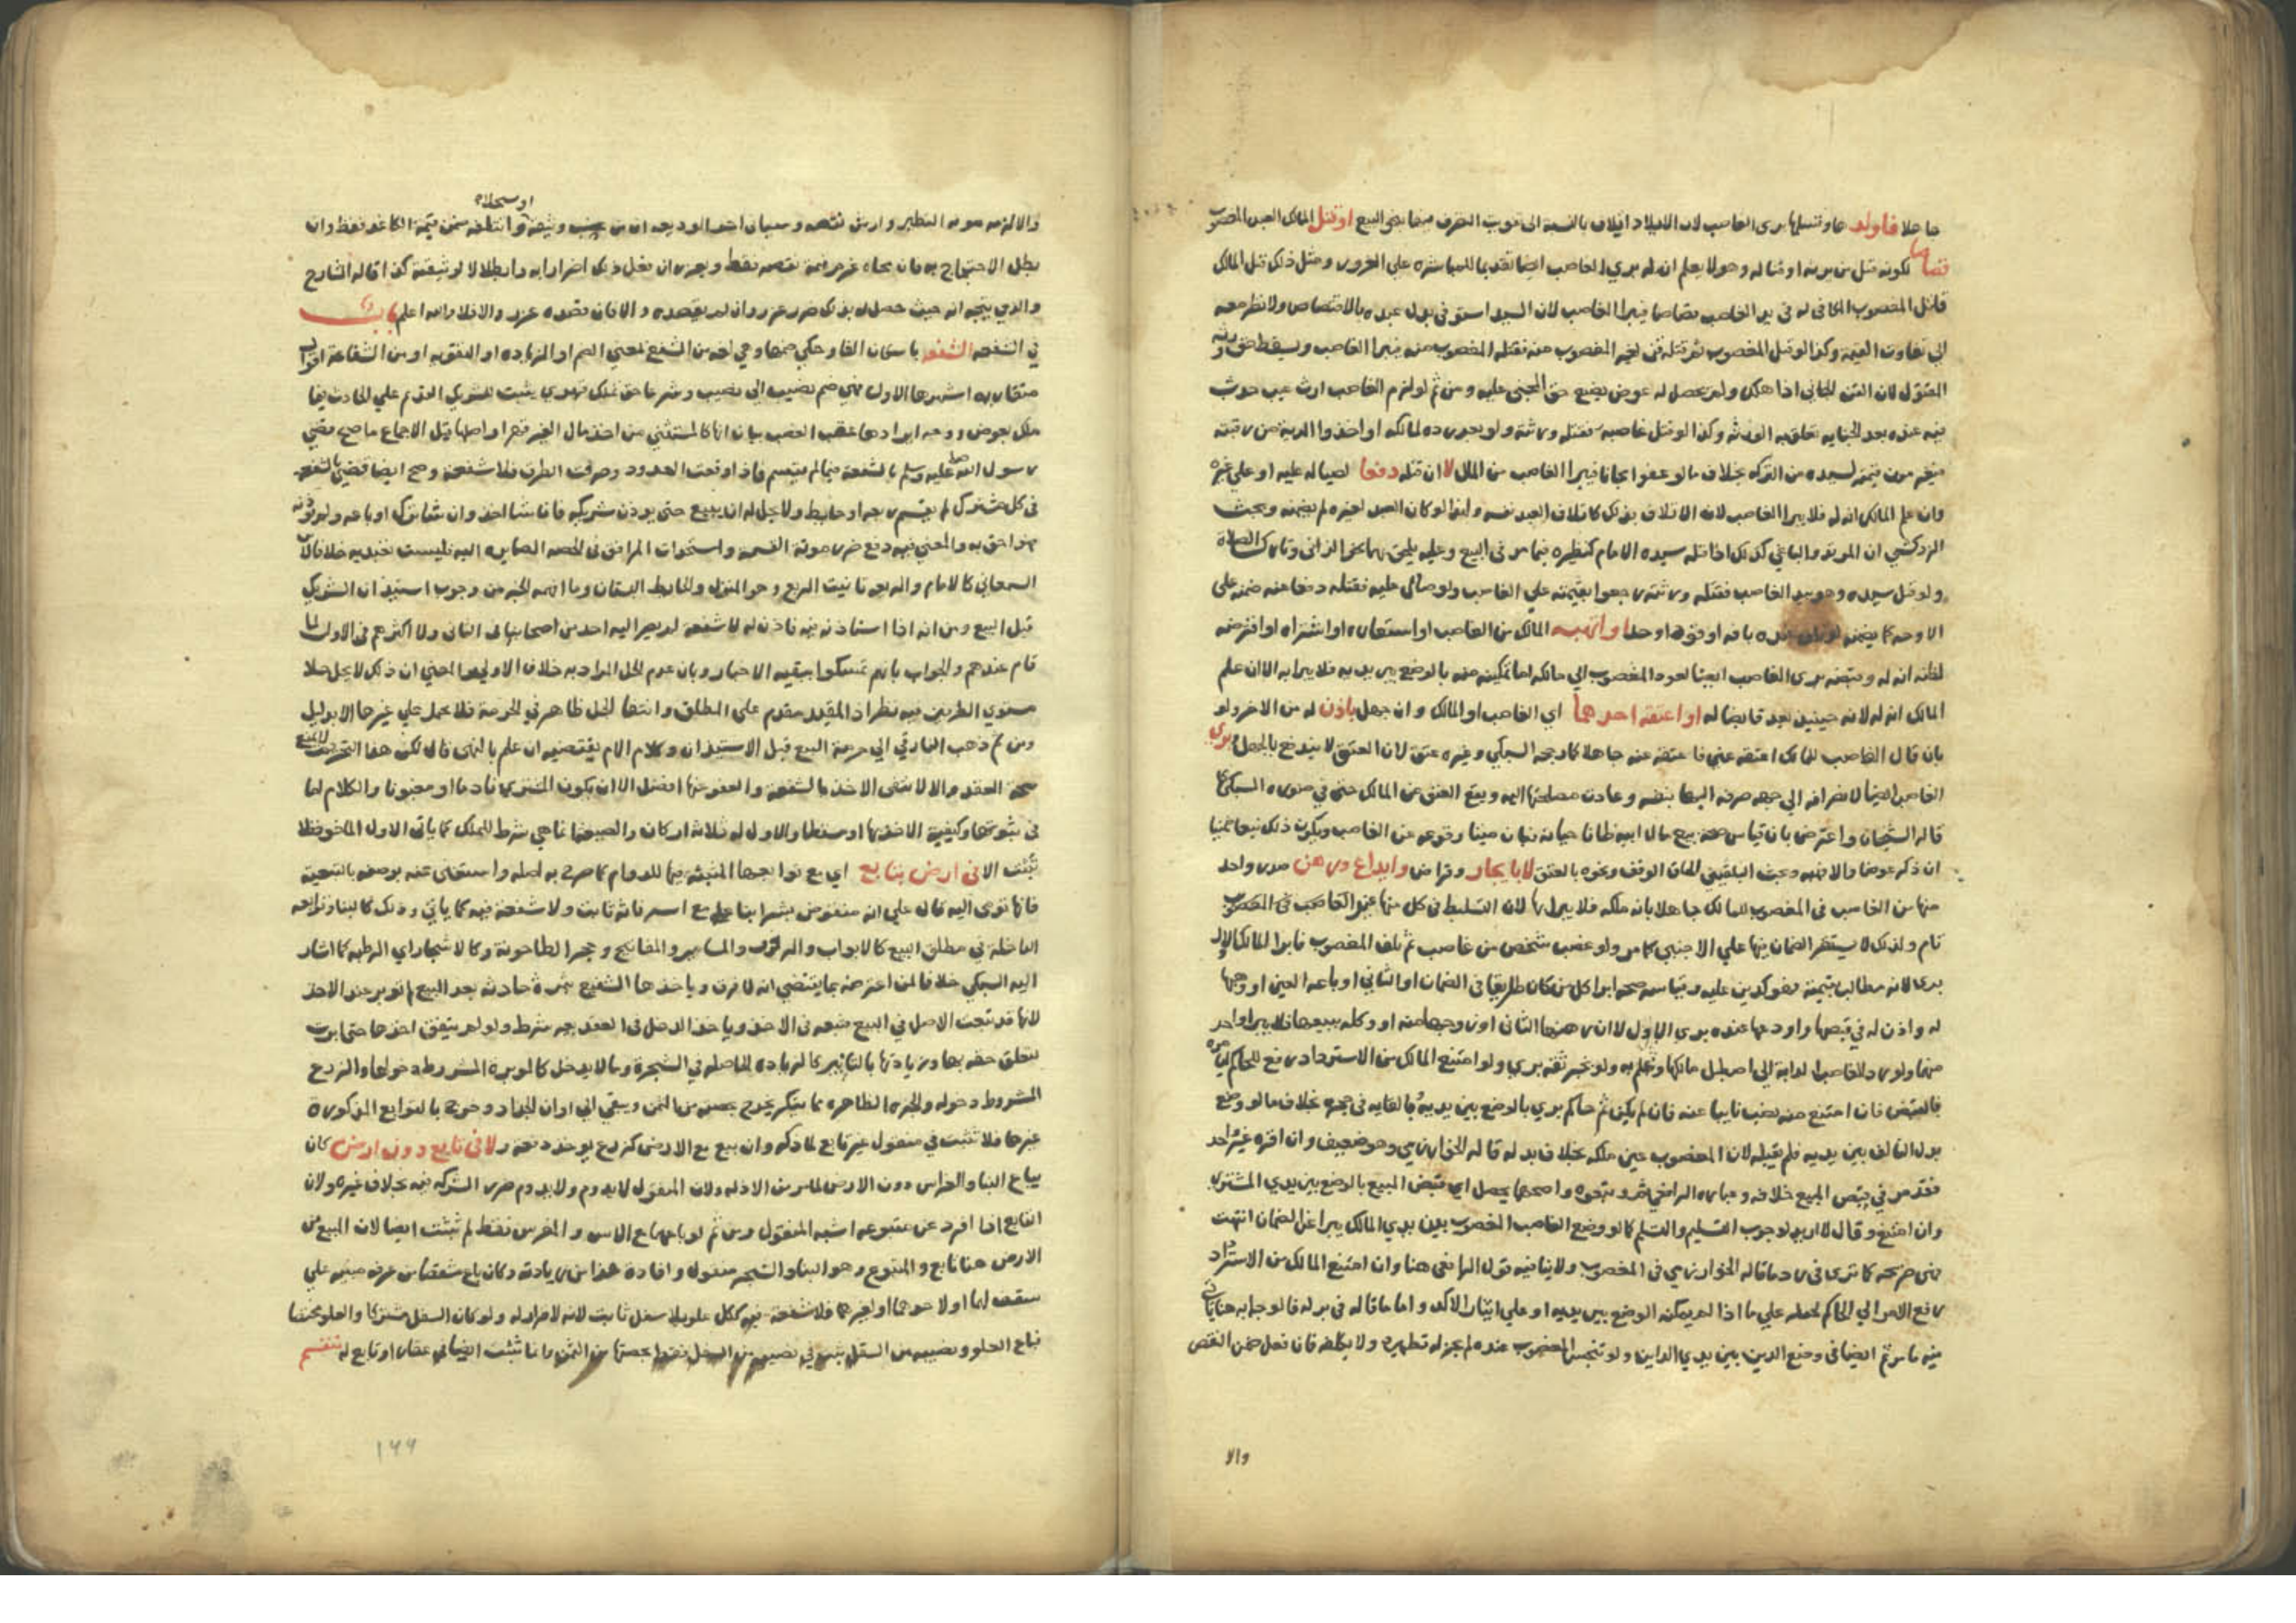 جاهلا فاولد ها وتسلمها برى الغاصب لان الايلاد اتلاف بالنسبة الى تفويت التصرف فيها بنحو البيع او قتل المالك العبد المغصوب
قصاصا لكونه قتل من يرثه او قنا له وهو لا يعلم انه له برى الغاصب ايضا تقديما للمباشرة على الغرور ومثل ذلك قتل المالك
قاتل المغصوب المكافى له في يد الغاصب قصاصا فيبرا الغاصب لان السيد استوفى بدل عبده بالاقتصاص ولا نظر معه
الى تفاوت القيمة وكذا لو قتل المغصوب ثم قتله قن لغير المغصوب منه فقتله المغصوب منه فيبرا الغاصب ويسقط حق ورثة
المقتول لان القن الجاني اذا هلك ولم يحصل له عوض يضيع حق المجنى عليه ومن ثم لو لزم الغاصب ارش عيب حدث
فيه عنده بعد الجناية تعلق به الورثة وكذا لو قتل غاصبه فقتله ورثته ولو بعد رده لمالكه او اخذوا الدية من رقبته
لسيده من التركة بخلاف ما لو عفوا مجانا فيبرا الغاصب من المال لا ان قتله دفعا لصياله عليه او على غيره
وان علم المالك انه له فلا يبرا الغاصب لان الاتلاف بذلك كاتلاف العبد نفسه ولهذا لو كان العبد لغيره لم يضمنه وبحث
الزركشي ان المرتد والباغي كذلك اذا قتله سيده الامام كنظيره فيما مر في البيع وعليه يلحق بهما نحو الزاني وتارك الصلاة
ولو قتل سيده وهو بيد الغاصب فقتله ورثته رجعوا بقيمته على الغاصب ولو صال عليه فقتله دفعا عنه ضمنه على
الاوجه كما يضمنه بافه او قودا وحدا او اتهبه المالك من الغاصب او استعاره او اشتراه او اقترضه
لظنه انه له وقبضه برى الغاصب ايضا لعود المغصوب الى مالكه اما تمكينه منه بالوضع بين يديه فلا يبرا به الا ان علم
المالك انه له لانه حينئذ يعد قابضا له او اعتقه احدهما اي الغاصب او المالك وان جهل باذن له من الاخر ولو
بان قال الغاصب للمالك اعتقه عني فاعتقه عنه جاهلا كما رجحه السبكي وغيره عتق لان العتق لا يندفع بالجهل وبرى
الغاصب ايضا لانصرافه الى جهة صرفه اليها بنفسه وعادت مصلحتها اليه ويقع العتق عن المالك حتى في صورة السبكي كما
قاله الشيخان واعترض بان قياس صحة بيع مال ابيه ظانا حياته فبان ميتا وقوعه عن الغاصب ويكون ذلك بيعا ضمنيا
ان ذكر عوضا والا فهبة وبحث البلقيني الحاق الوقف ونحوه بالعتق لا بايجار وقراض وايداع ورهن صدر واحد
منها من الغاصب في المغصوب للمالك جاهلا بانه ملكه فلا يبرا بها لان التسليط في كل منها غير
تام ولذلك لا يستقر الضمان فيها على الاجنبي كما مر ولو غصب شخص من غاصب ثم تلف المغصوب فابرا المالك الاول
برى لانه مطالب بقيمته فهو كدين عليه وقياسه صحة ابرا كل من كان طريقا في الضمان او الثاني او باعه العين او وهبها
له واذن له في قبضها واودعها عنده برى الاول لا ان رهنها الثاني او زوجها منه او وكله ببيعها فلا يبرا واحد
منهما ولو رد الغاصب الدابة الى اصطبل مالكها وعلم به ولو بخبر ثقة برى ولو امتنع المالك من الاسترداد رفع للحاكم ليامره
بالقبض فان امتنع منه نصب نايبا عنه فان لم يكن ثم حاكم برى بالوضع بين يديه وبالقايه في حجره بخلاف ما لو وضع
بدل التالف بين يديه فلم يقبله لان المغصوب عين ملكه بخلاف بدله قاله الخوارزمي وهو ضعيف وان اقره غير واحد
فقد مر في قبض المبيع خلافه وعبارة الرافعي ثم ونحوه واصحهما يحصل اي قبض المبيع بالوضع بين يدي المشتري
وان امتنع وقال لا اريد لوجوب التسليم والتسلم كما لو وضع الغاصب المغصوب بين يدي المالك يبرا عن الضمان انتهت
فهى صريحة كما ترى في رد ما قاله الخوارزمي في المغصوب ولا ينافيه قول الرافعي هنا وان امتنع المالك من الاسترداد
رفع الامر الى الحاكم لحمله على ما اذا لم يمكنه الوضع بين يديه او على ايثار الاكد واما ما قاله في بدله فالوجه انه هنا ياتي
فيه ما مر ثم ايضا في وضع الدين بين يدي الداين ولو تنجس المغصوب عنده لم يجز له تطهيره ولا يكلفه فان فعل ضمن النقص
والا
او سجلا
والا لزمه مونة التطهير وارش نقصه وسيان احد الوديعة ان من وثيقة واتلفه ضمن قيمة الكاغد فقط وان
بطل الاحتجاج به بان محاه غرم قيمة نقصه فقط ويعزر ان فعل ذلك اضرارا به وابطالا لوثيقته كذا قاله الشارح
والذي يتجه انه حيث حصل له بذلك ضرر عزر وان لم يقصده والا فان قصده عزر والا فلا والله اعلم باب
في الشفعة الشفعة باسكان الفا وحكي ضمها وهي لغة من الشفع لمعنى الضم او الزيادة او التقوية او من الشفاعة اقوال
متقاربة اشهرها الاول فهي ضم نصيب الى نصيب وشرعا حق تملك قهري يثبت للشريك القديم على الحادث فيما
ملك بعوض ووجه ايرادها عقب الغصب بيان انها كالمستثنى من اخذ مال الغير قهرا واصلها قبل الاجماع ما صح قضى
رسول الله صلى الله عليه وسلم بالشفعة فيما لم يقسم فاذا وقعت الحدود وصرفت الطرق فلا شفعة وصح ايضا قضى بالشفعة
في كل مشترك لم يقسم ربعه او حايط ولا يحل له ان يبيع حتى يوذن شريكه فان شا اخذ وان شا ترك او باعه ولم يوذنه
فهو احق به والمعنى فيه دفع ضرر مونة القسمة واستحداث المرافق في الحصة الصايرة اليه فليست تعبدية خلافا لابن
السمعاني كالامام والربعة تانيث الربع وهو المنزل والحايط البستان وما افهمه الخبر من وجوب استيذان الشريك
قبل البيع ومن انه اذا استاذنه فيه فاذن له لا شفعة لم يصر اليه احد من اصحابنا في الثاني ولا اكثرهم في الاول لما
قام عندهم والجواب بانهم تمسكوا ببقية الاخبار وبان عدم الحل المراد به خلاف الاولى والمعنى ان ذلك لا يحل حلا
مستوى الطرفين فيه نظر اذ المقيد مقدم على المطلق وانتفا الحل ظاهر في الحرمة فلا يحمل على غيرها الا بدليل
ومن ثم ذهب الفارقي الى حرمة البيع قبل الاستيذان وكلام الام يقتضيه ان علم بالنهى قال لكن هذا التحريم لا يمنع
صحة العقد والا لانتفى الاخذ بالشفعة والعفو عنها افضل الا ان يكون المشتري نادما او مغبونا والكلام اما
في ثبوتها وكيفية الاخذ بها او سقطها والاول له ثلاثة اركان والصيغة انما هي شرط للتملك كما ياتي الاول الماخوذ فلا
تثبت الا في ارض بتابع اي مع توابعها المثبتة فيها للدوام كما صرح به اصله واستغنى عنه بوصفه بالتبعية
فانها تومى اليه قال على انه منقوض بشرا بنا على مع اسه فانه ثابت ولا شفعة فيه كما ياتي وذلك كالبنا وتوابعه
الداخلة في مطلق البيع كالابواب والرفوف والمسامير والمفاتيح وحجر الطاحونة وكالاشجار اي الرطبة كما اشار
اليه السبكي خلافا لمن اعترضه بما يقتضي انه لا فرق وياخذها الشفيع ثمرة حادثة بعد البيع ان لم توبر عند الاخذ
لانها قد تبعت الاصل في البيع فتبعه في الاخذ وياخذ الدخل في العقد بعد شرط ولو لم يتفق اخذها حتى ابرت
لتعلق حقه بها وزيادتها بالتابير كالزيادة الحاصلة في الشجرة وما لا يدخل كالموبرة المشروط دخولها والزرع
المشروط دخوله والجزة الظاهرة مما يتكرر يخرج بحصته من الثمن ويبقى الى اوان الجذاذ وخرج بالتوابع المذكورة
غيرها فلا تثبت في منقول غير تابع لما ذكر وان بيع مع الارض كزرع يوخذ دفعة ولا في تابع دون ارض كان
يباع البنا والغراس دون الارض لما مر من الادلة ولان المنقول لا يدوم ولا يدوم ضرر الشركة فيه بخلاف غيره ولان
التابع اذا افرد عن متبوعه اشبه المنقول ومن ثم لو باعهما مع الاس والمغرس فقط لم تثبت ايضا لان المبيع من
الارض هنا تابع والمتبوع هو البنا والشجر منقول وافادة هذا من زيادته وكان باع شقصا من غرفة مبنية على
سقف لهما او لاحدهما او لغيرهما فلا شفعة فيه ككل علو بلا سفل ثابت لانه لا قرار له ولو كان السفل مشتركا والعلو مختصا
فباع العلو ونصيبه من السفل تثبت في نصيبه من السفل فقط بحصتها من الثمن وانما تثبت ايضا في عقار او تابع له تنقسم
١٩٩